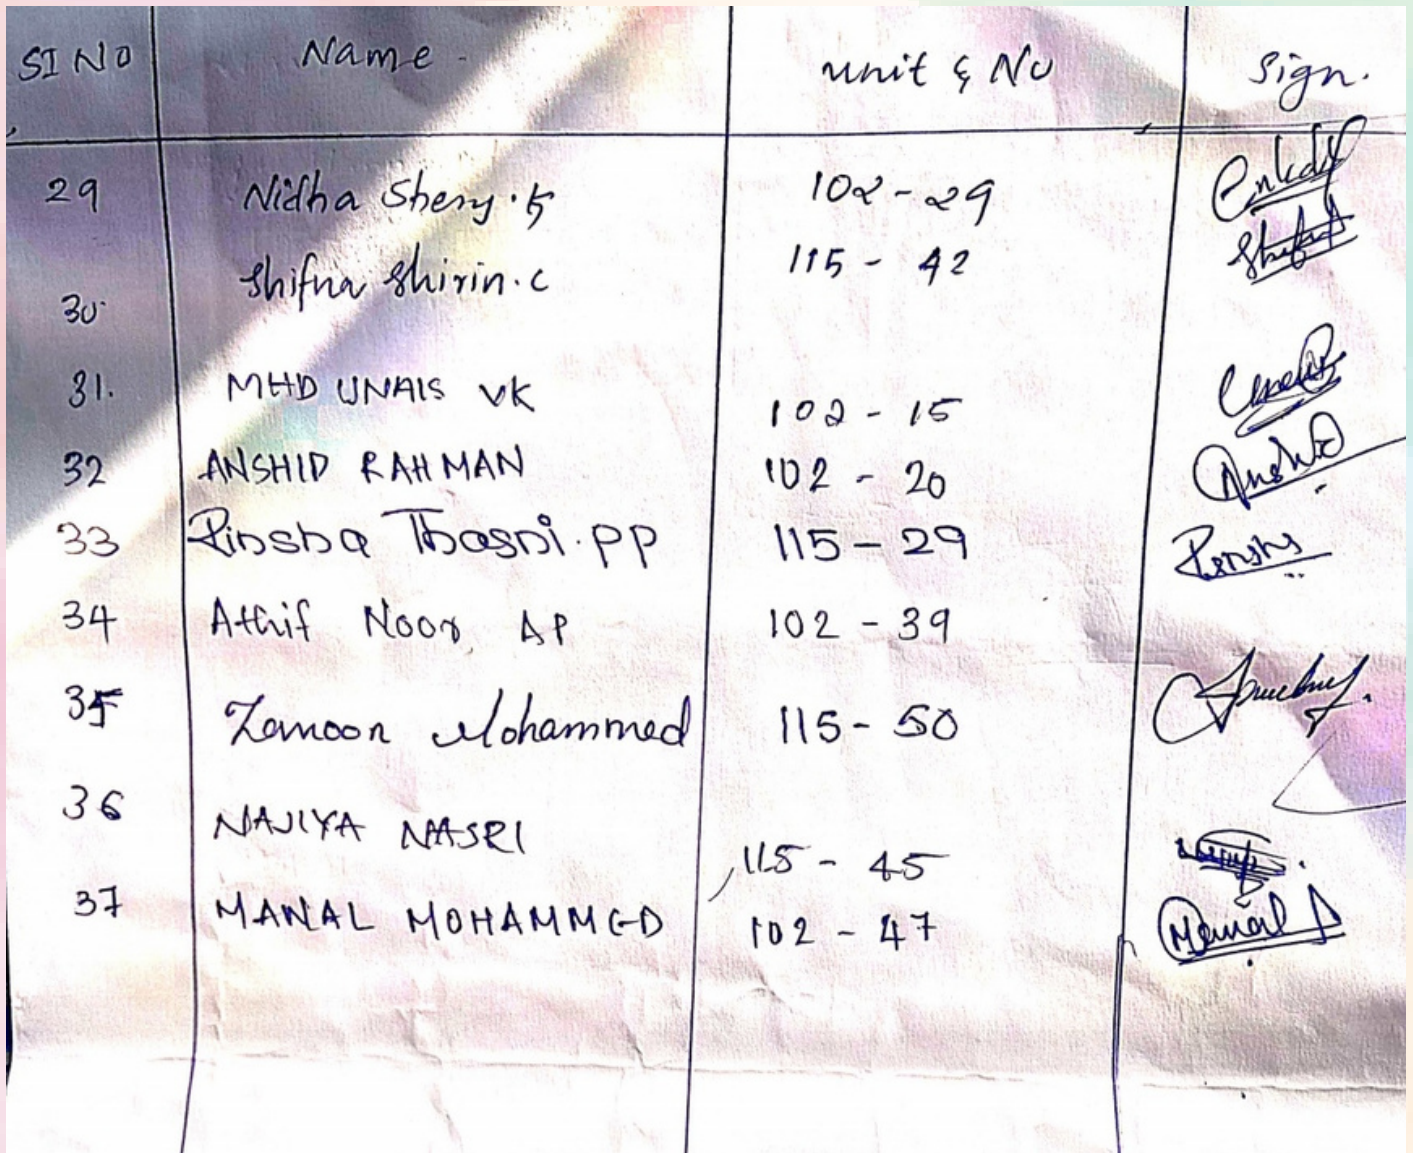 SI NO Name - unit & No Sign.
29 Nidha Shery. k 102 - 29
30 Shifna Shirin. c 115 - 42
31. MHD UNAIS VK 102 - 15
32 ANSHID RAHMAN 102 - 20
33 Rinsha Thasni. PP 115 - 29
34 Athif Noor AP 102 - 39
35 Zamoon Mohammed 115 - 50
36 NAJIYA NASRI 115 - 45
37 MANAL MOHAMMED 102 - 47